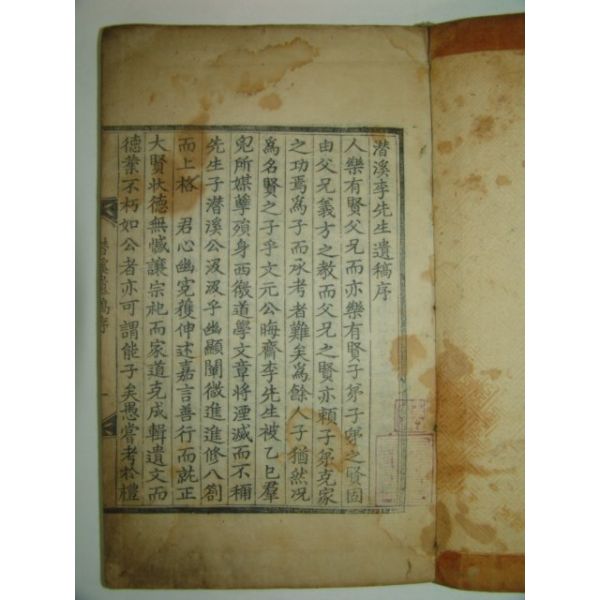 潜溪李先生遺稿序
人樂有賢父兄而亦樂有賢子弟子弟之賢固
由父兄義方之教而父兄之賢亦賴子弟克家
之功焉爲子而承考者難矣爲餘人子猶然况
爲名賢之子乎文元公晦齋李先生被乙巳羣
兇所媒孽殞身西徼道學文章將湮滅而不稱
先生子潜溪公汲汲乎幽顯闡微進進修八劄
而上格 君心幽寃獲伸述嘉言善行而就正
大賢狀德無憾讓宗祀而家道克成輯遺文而
德業不朽如公者亦可謂能子矣愚嘗考於禮
潜溪遺稿序
一